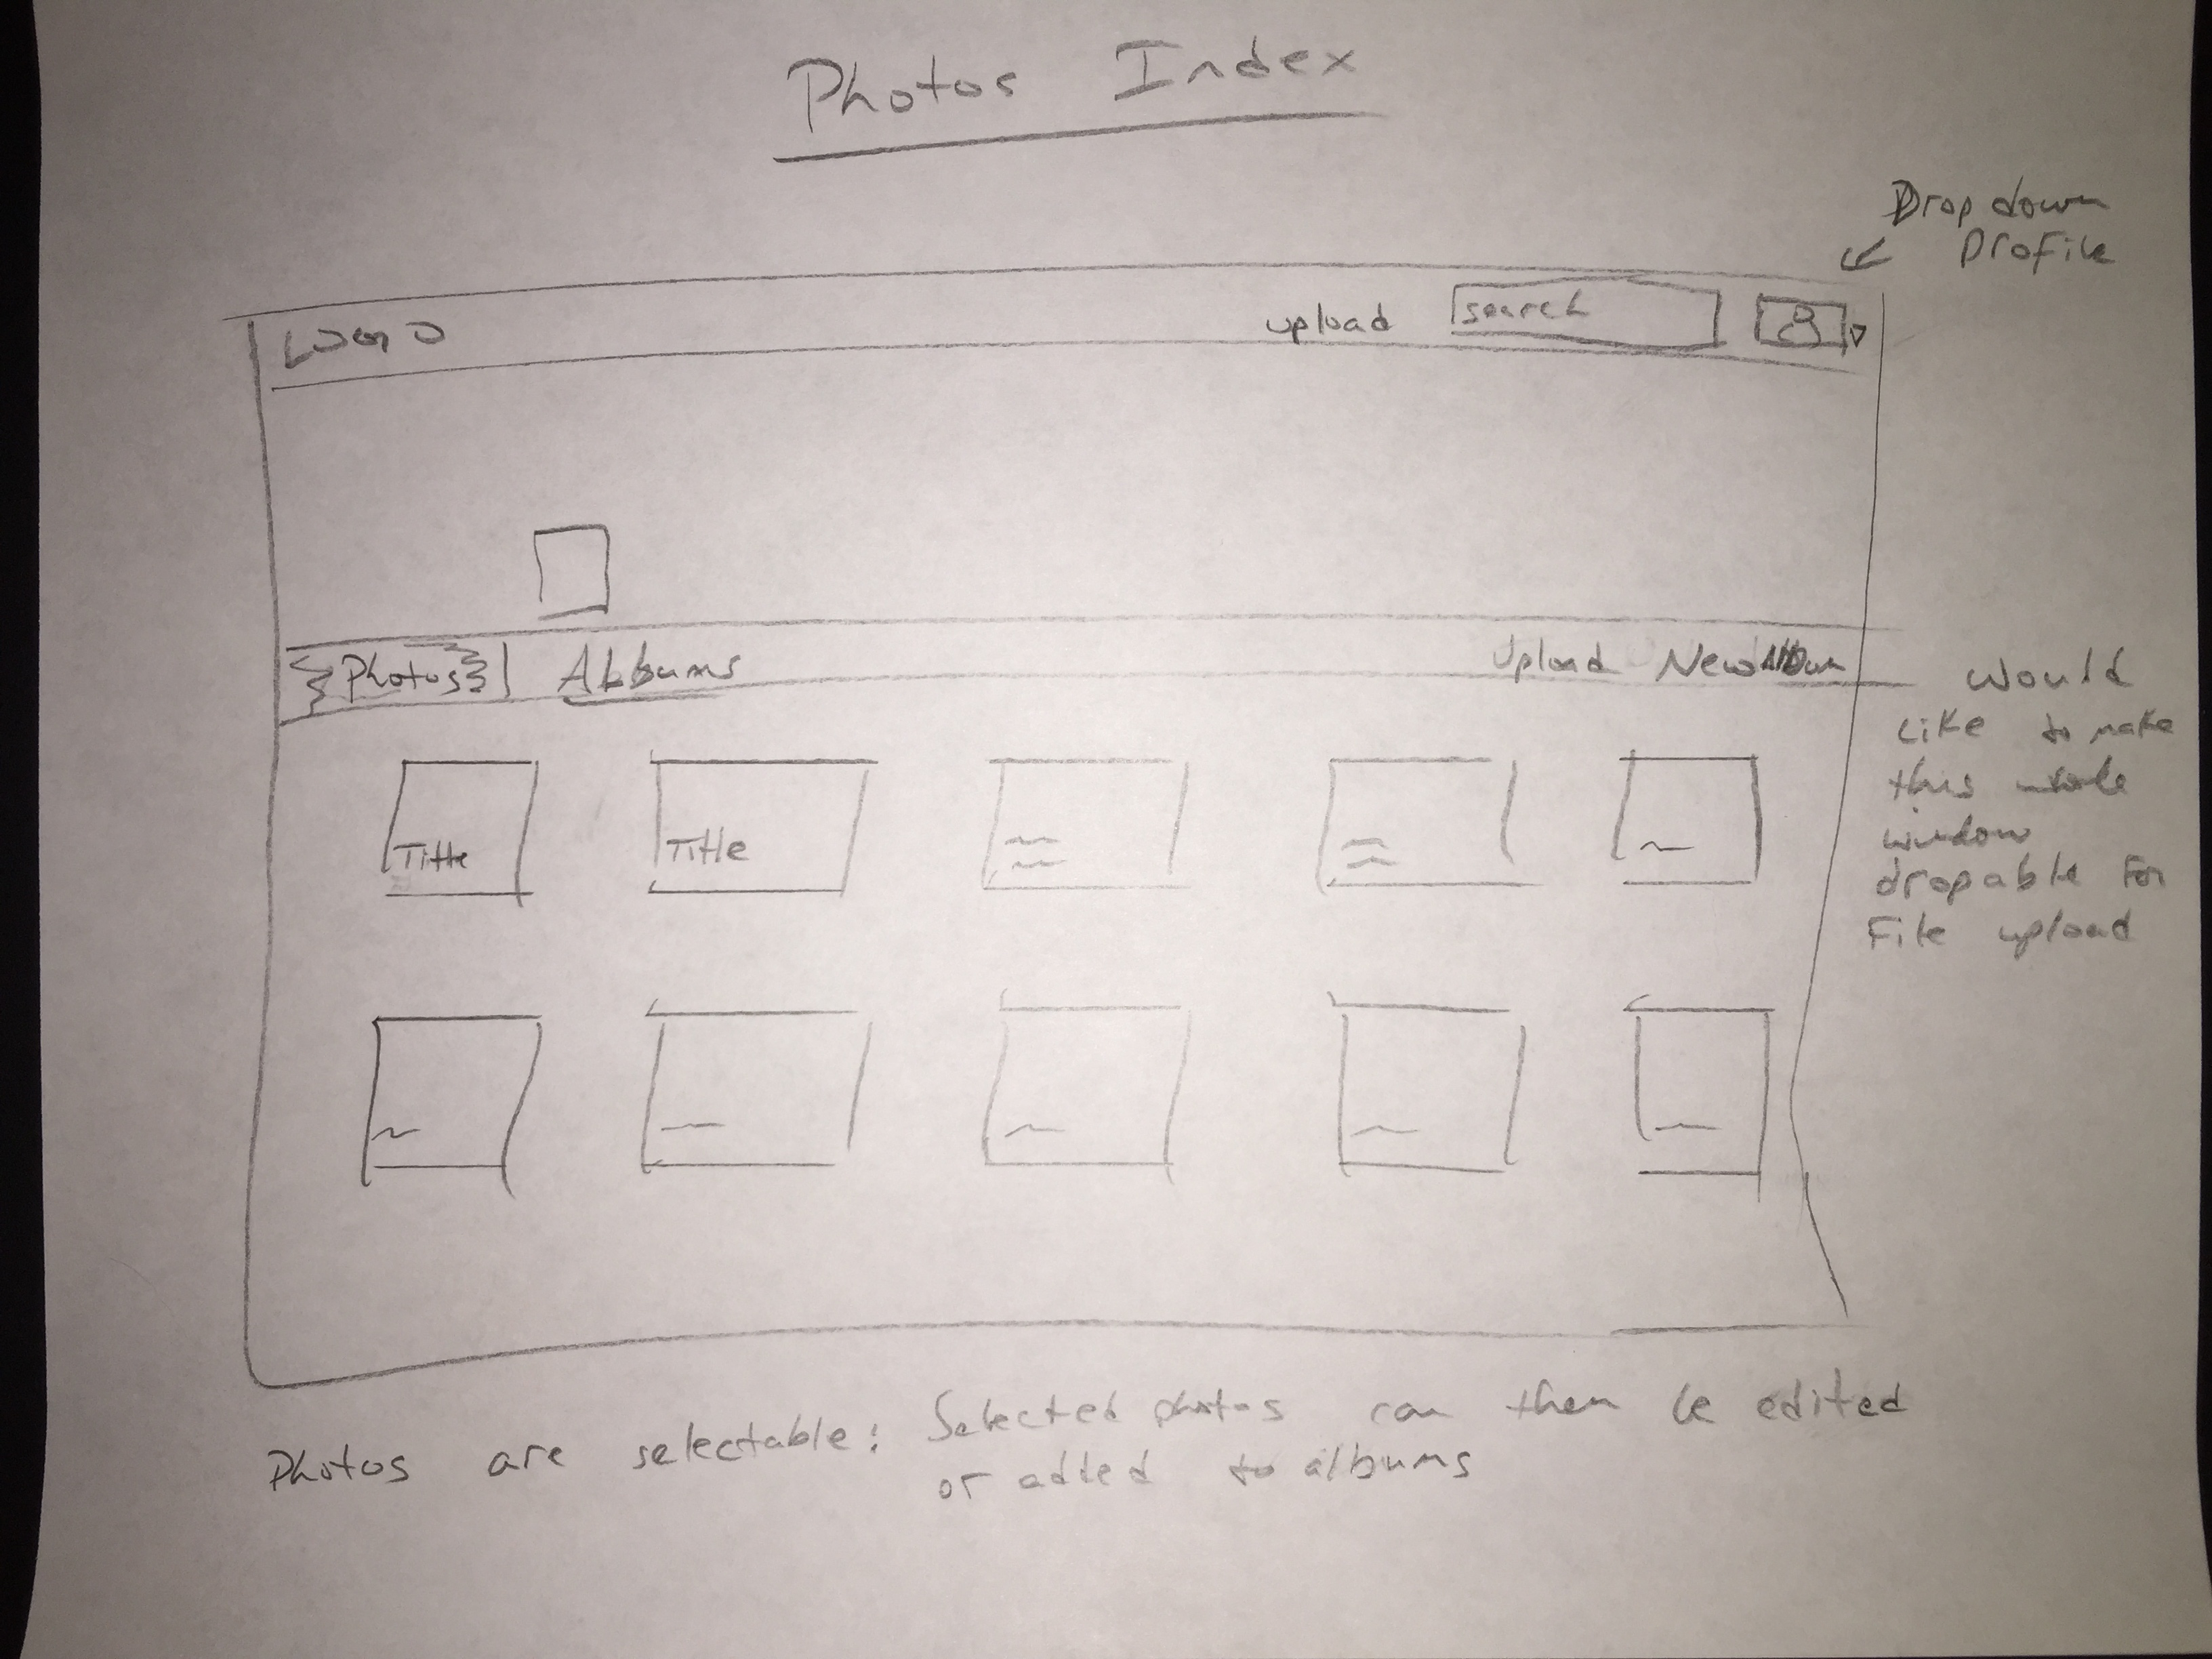 Photos Index
Drop down
Profile
LOGO
upload
search
Photos
Albums
Upload
New Album
would
like to make
this whole
window
dropable for
File upload
Title
Title
Photos are selectable: Selected photos can then be edited
or added to albums